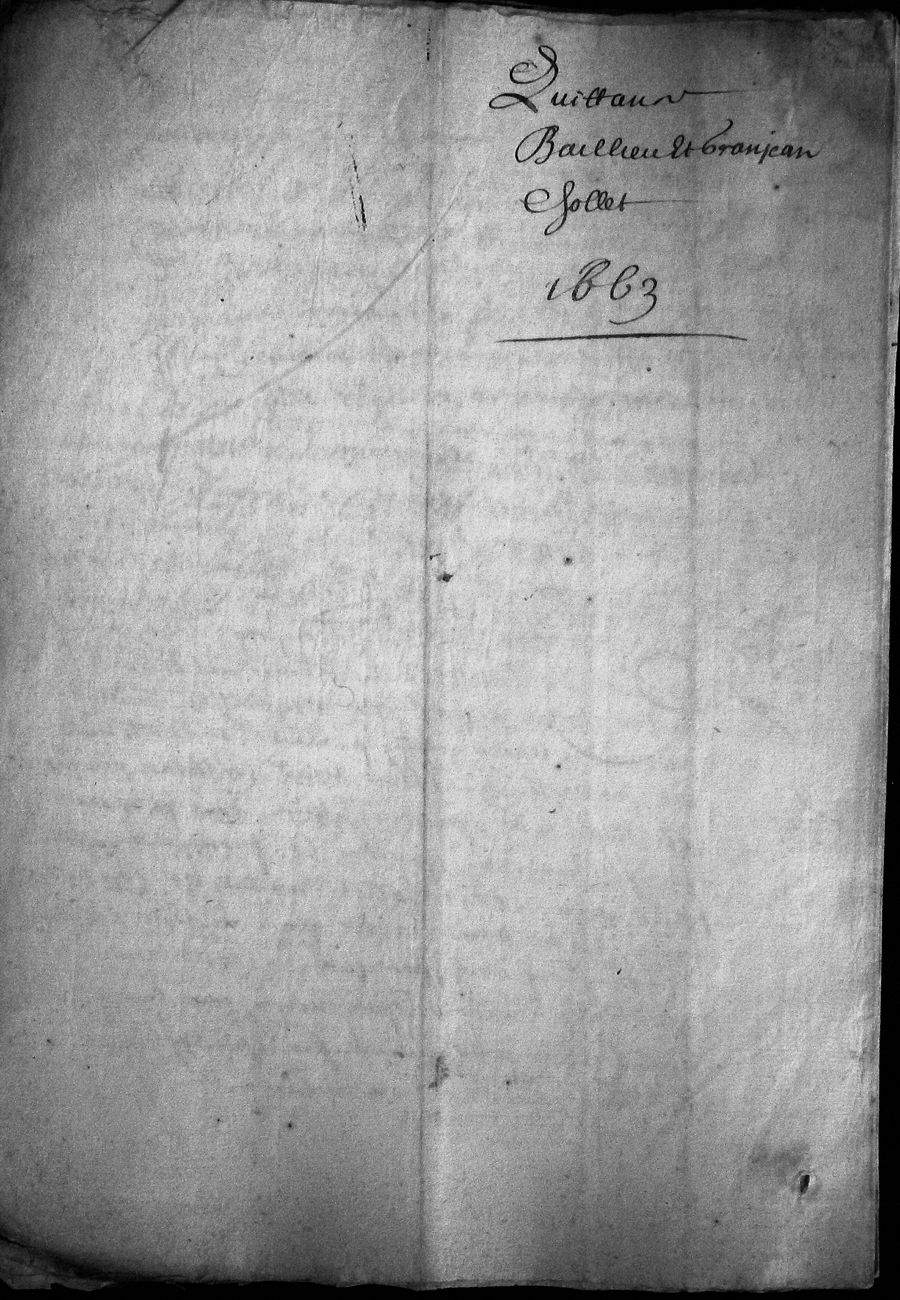 Quittance
Baillieu Et Granjean
Chollet
1663